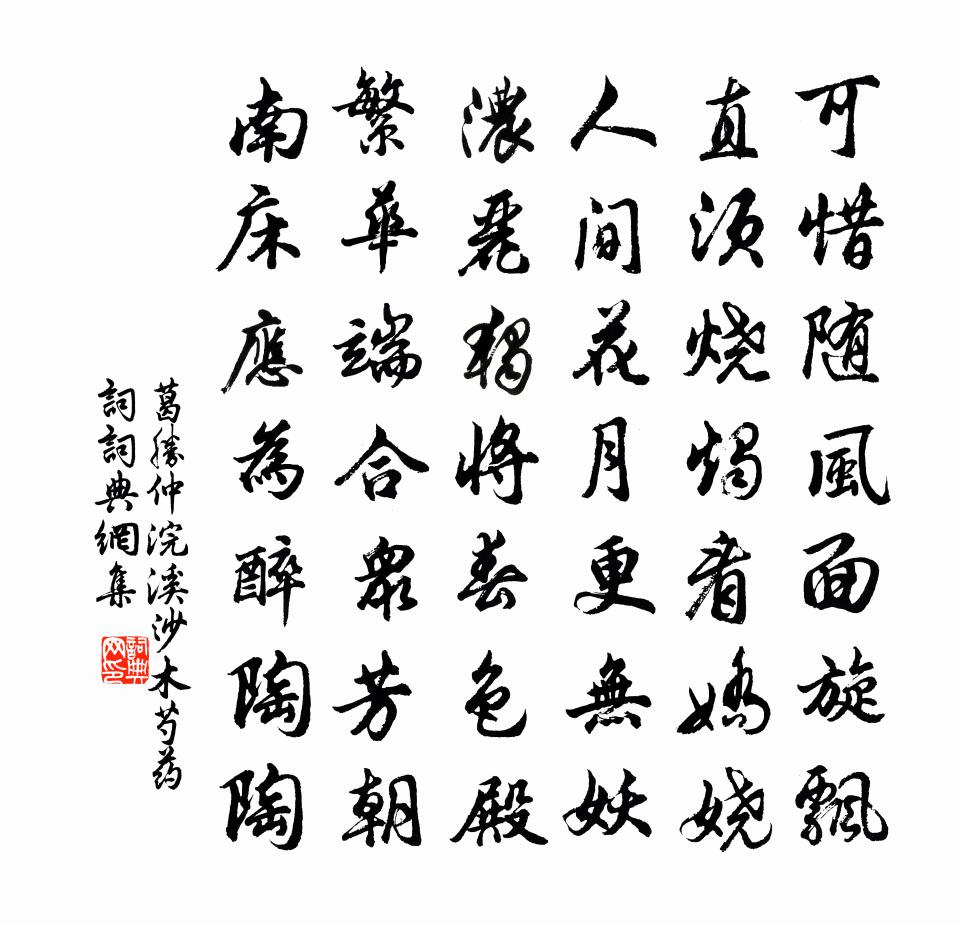 可惜随風面旋飄
直須烧燭看嬌娆
人間花月更無妖
濃麗独將春色殿
繁華端合衆芳朝
南床應為醉陶陶
葛勝仲浣溪沙木芍药
詞詞典網集
詞典网印